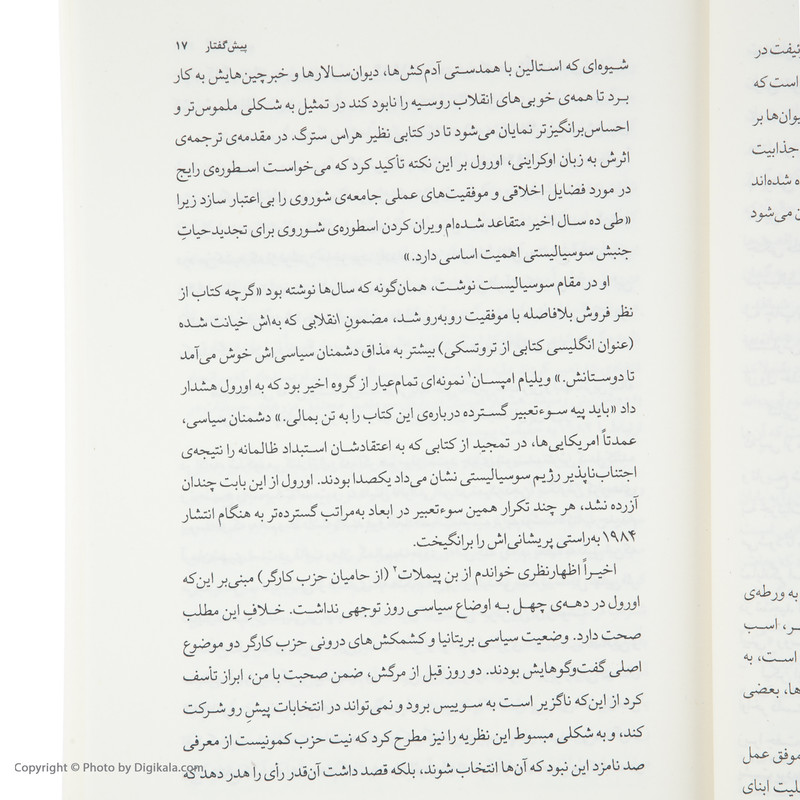 پیش‌گفتار ۱۷
شیوه‌ای که استالین با همدستی آدم‌کش‌ها، دیوان‌سالارها و خبرچین‌هایش به کار
برد تا همه‌ی خوبی‌های انقلاب روسیه را نابود کند در تمثیل به شکلی ملموس‌تر و
احساس‌برانگیزتر نمایان می‌شود تا در کتابی نظیر هراس سترگ. در مقدمه‌ی ترجمه‌ی
اثرش به زبان اوکراینی، اورول بر این نکته تأکید کرد که می‌خواست اسطوره‌ی رایج
در مورد فضایل اخلاقی و موفقیت‌های عملی جامعه‌ی شوروی را بی‌اعتبار سازد زیرا
«طی ده سال اخیر متقاعد شده‌ام ویران کردن اسطوره‌ی شوروی برای تجدیدحیاتِ
جنبش سوسیالیستی اهمیت اساسی دارد.»
او در مقام سوسیالیست نوشت، همان‌گونه که سال‌ها نوشته بود «گرچه کتاب از
نظر فروش بلافاصله با موفقیت روبه‌رو شد، مضمونِ انقلابی که به‌اش خیانت شده
(عنوان انگلیسی کتابی از تروتسکی) بیشتر به مذاق دشمنان سیاسی‌اش خوش می‌آمد
تا دوستانش.» ویلیام امپسان۱ نمونه‌ای تمام‌عیار از گروه اخیر بود که به اورول هشدار
داد «باید پیه سوءتعبیر گسترده درباره‌ی این کتاب را به تن بمالی.» دشمنان سیاسی،
عمدتاً امریکایی‌ها، در تمجید از کتابی که به اعتقادشان استبداد ظالمانه را نتیجه‌ی
اجتناب‌ناپذیر رژیم سوسیالیستی نشان می‌داد یکصدا بودند. اورول از این بابت چندان
آزرده نشد، هر چند تکرار همین سوءتعبیر در ابعاد به‌مراتب گسترده‌تر به هنگام انتشار
۱۹۸۴ به‌راستی پریشانی‌اش را برانگیخت.
اخیراً اظهارنظری خواندم از بن پیملات۲ (از حامیان حزب کارگر) مبنی‌بر این‌که
اورول در دهه‌ی چهل به اوضاع سیاسی روز توجهی نداشت. خلافِ این مطلب
صحت دارد. وضعیت سیاسی بریتانیا و کشمکش‌های درونی حزب کارگر دو موضوع
اصلی گفت‌وگوهایش بودند. دو روز قبل از مرگش، ضمن صحبت با من، ابراز تأسف
کرد از این‌که ناگزیر است به سوییس برود و نمی‌تواند در انتخابات پیشِ رو شرکت
کند، و به شکلی مبسوط این نظریه را نیز مطرح کرد که نیت حزب کمونیست از معرفی
صد نامزد این نبود که آن‌ها انتخاب شوند، بلکه قصد داشت آن‌قدر رأی را هدر دهد که
است که
جذابیت
شده‌اند
می‌شود
به ورطه‌ی
اسب
است، به
بعضی
موفق عمل
ابنای
Copyright © Photo by Digikala.com